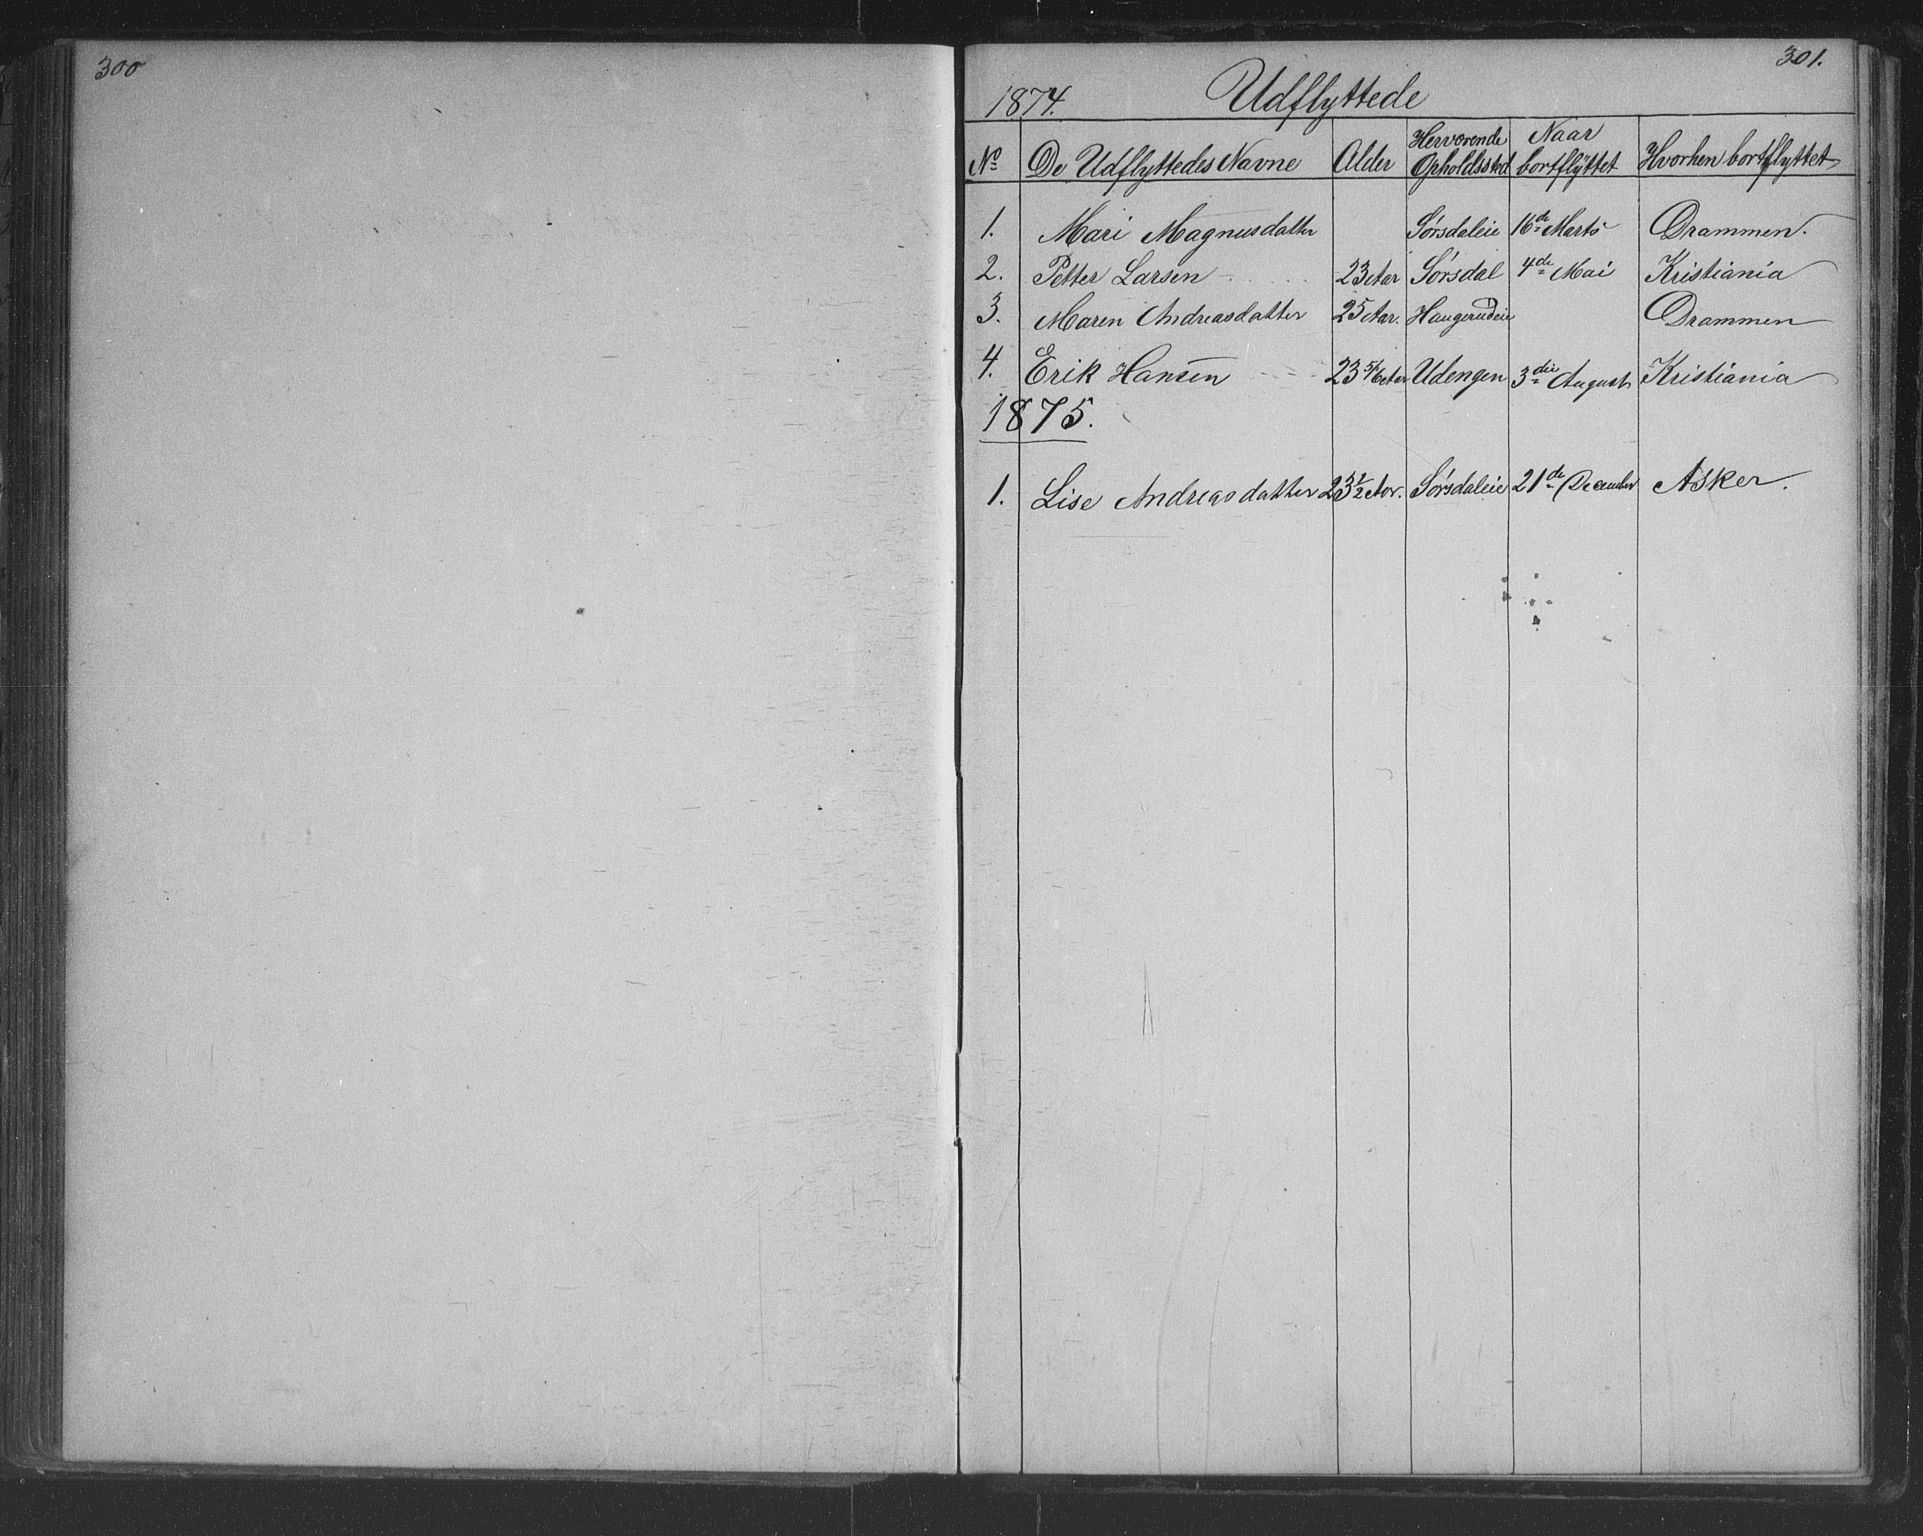 300
301.
1874. Udflyttede
No De Udflyttedes Navne Alder Herværende Opholdssted Naar bortflyttet Hvorhen bortflyttet
1. Mari Magnusdatter Sørsdaleie 16de Marts Drammen.
2. Petter Larsen 23 Aar Sørsdal 4de Mai Kristiania
3. Maren Andreasdatter 25 Aar. Haugerudeie Drammen
4. Erik Hansen 23 5/6 Aar Udengen 3die August Kristiania
1875.
1. Lise Andreasdatter 23 1/2 Aar. Sørsdaleie 21de December Asker.